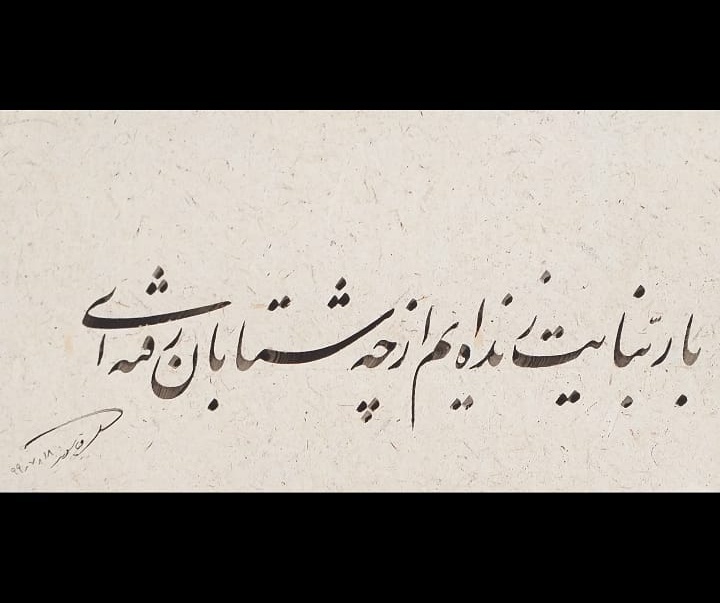 با ربّنایت زنده ایم از چه شتابان رفته ای
۹۹٫۷٫۱۸